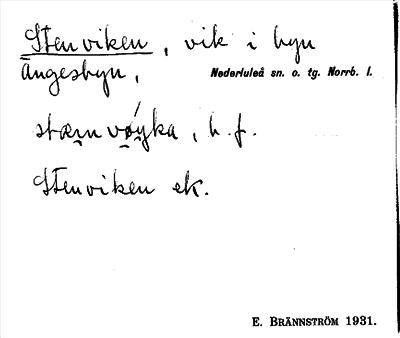 Stenviken, vik i byn
Ängesbyn, Nederluleå sn. o. tg. Norrb. l.
b. f.
Stenviken ek.
E. BRÄNNSTRÖM 1931.